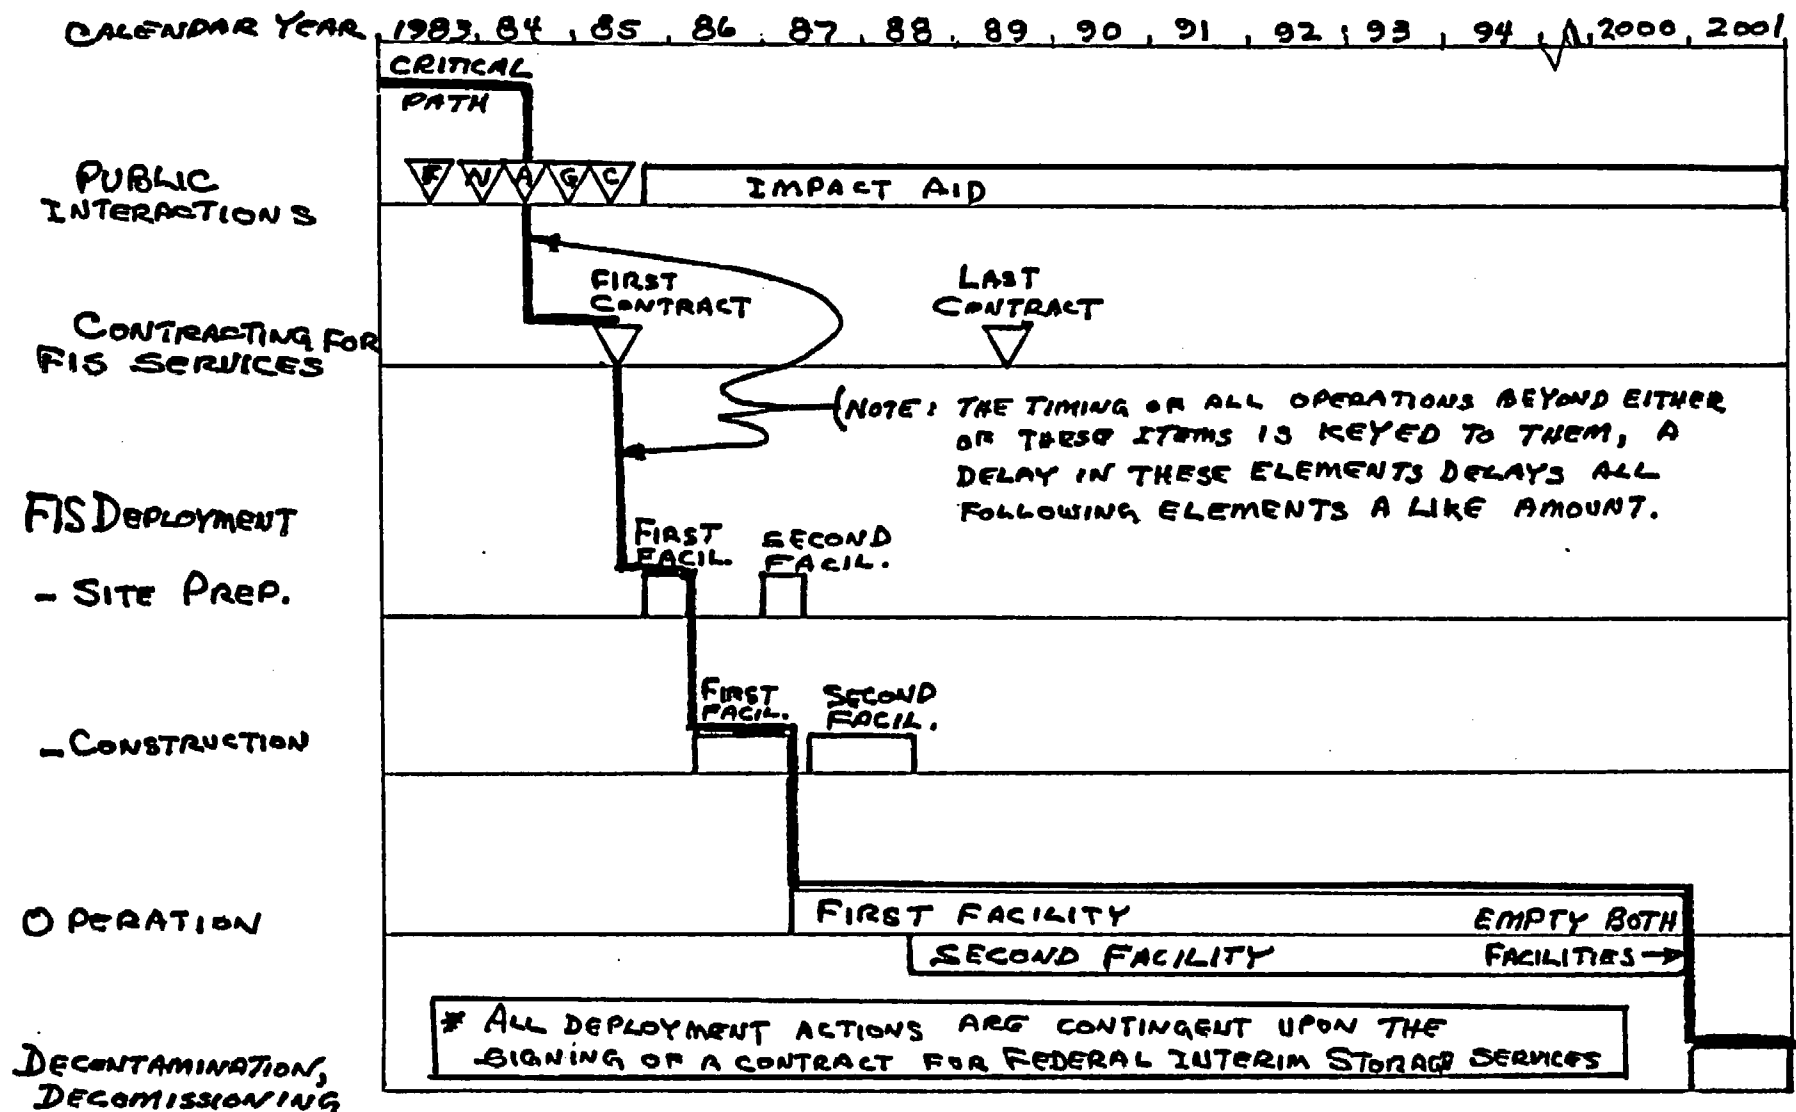 CALENDAR YEAR 1983 84 85 86 87 88 89 90 91 92 93 94 2000 2001
CRITICAL
PATH
PUBLIC
INTERACTIONS
N A G C
IMPACT AID
FIRST
CONTRACT
LAST
CONTRACT
CONTRACTING FOR
FIS SERVICES
(NOTE: THE TIMING OR ALL OPERATIONS BEYOND EITHER
OR THESE ITEMS IS KEYED TO THEM, A
DELAY IN THESE ELEMENTS DELAYS ALL
FOLLOWING ELEMENTS A LIKE AMOUNT.
FIS DEPLOYMENT
FIRST
FACIL.
SECOND
FACIL.
- SITE PREP.
FIRST
FACIL.
SECOND
FACIL.
- CONSTRUCTION
OPERATION
FIRST FACILITY
EMPTY BOTH
SECOND FACILITY
FACILITIES→
* ALL DEPLOYMENT ACTIONS ARE CONTINGENT UPON THE
SIGNING OF A CONTRACT FOR FEDERAL INTERIM STORAGE SERVICES
DECONTAMINATION,
DECOMISSIONING